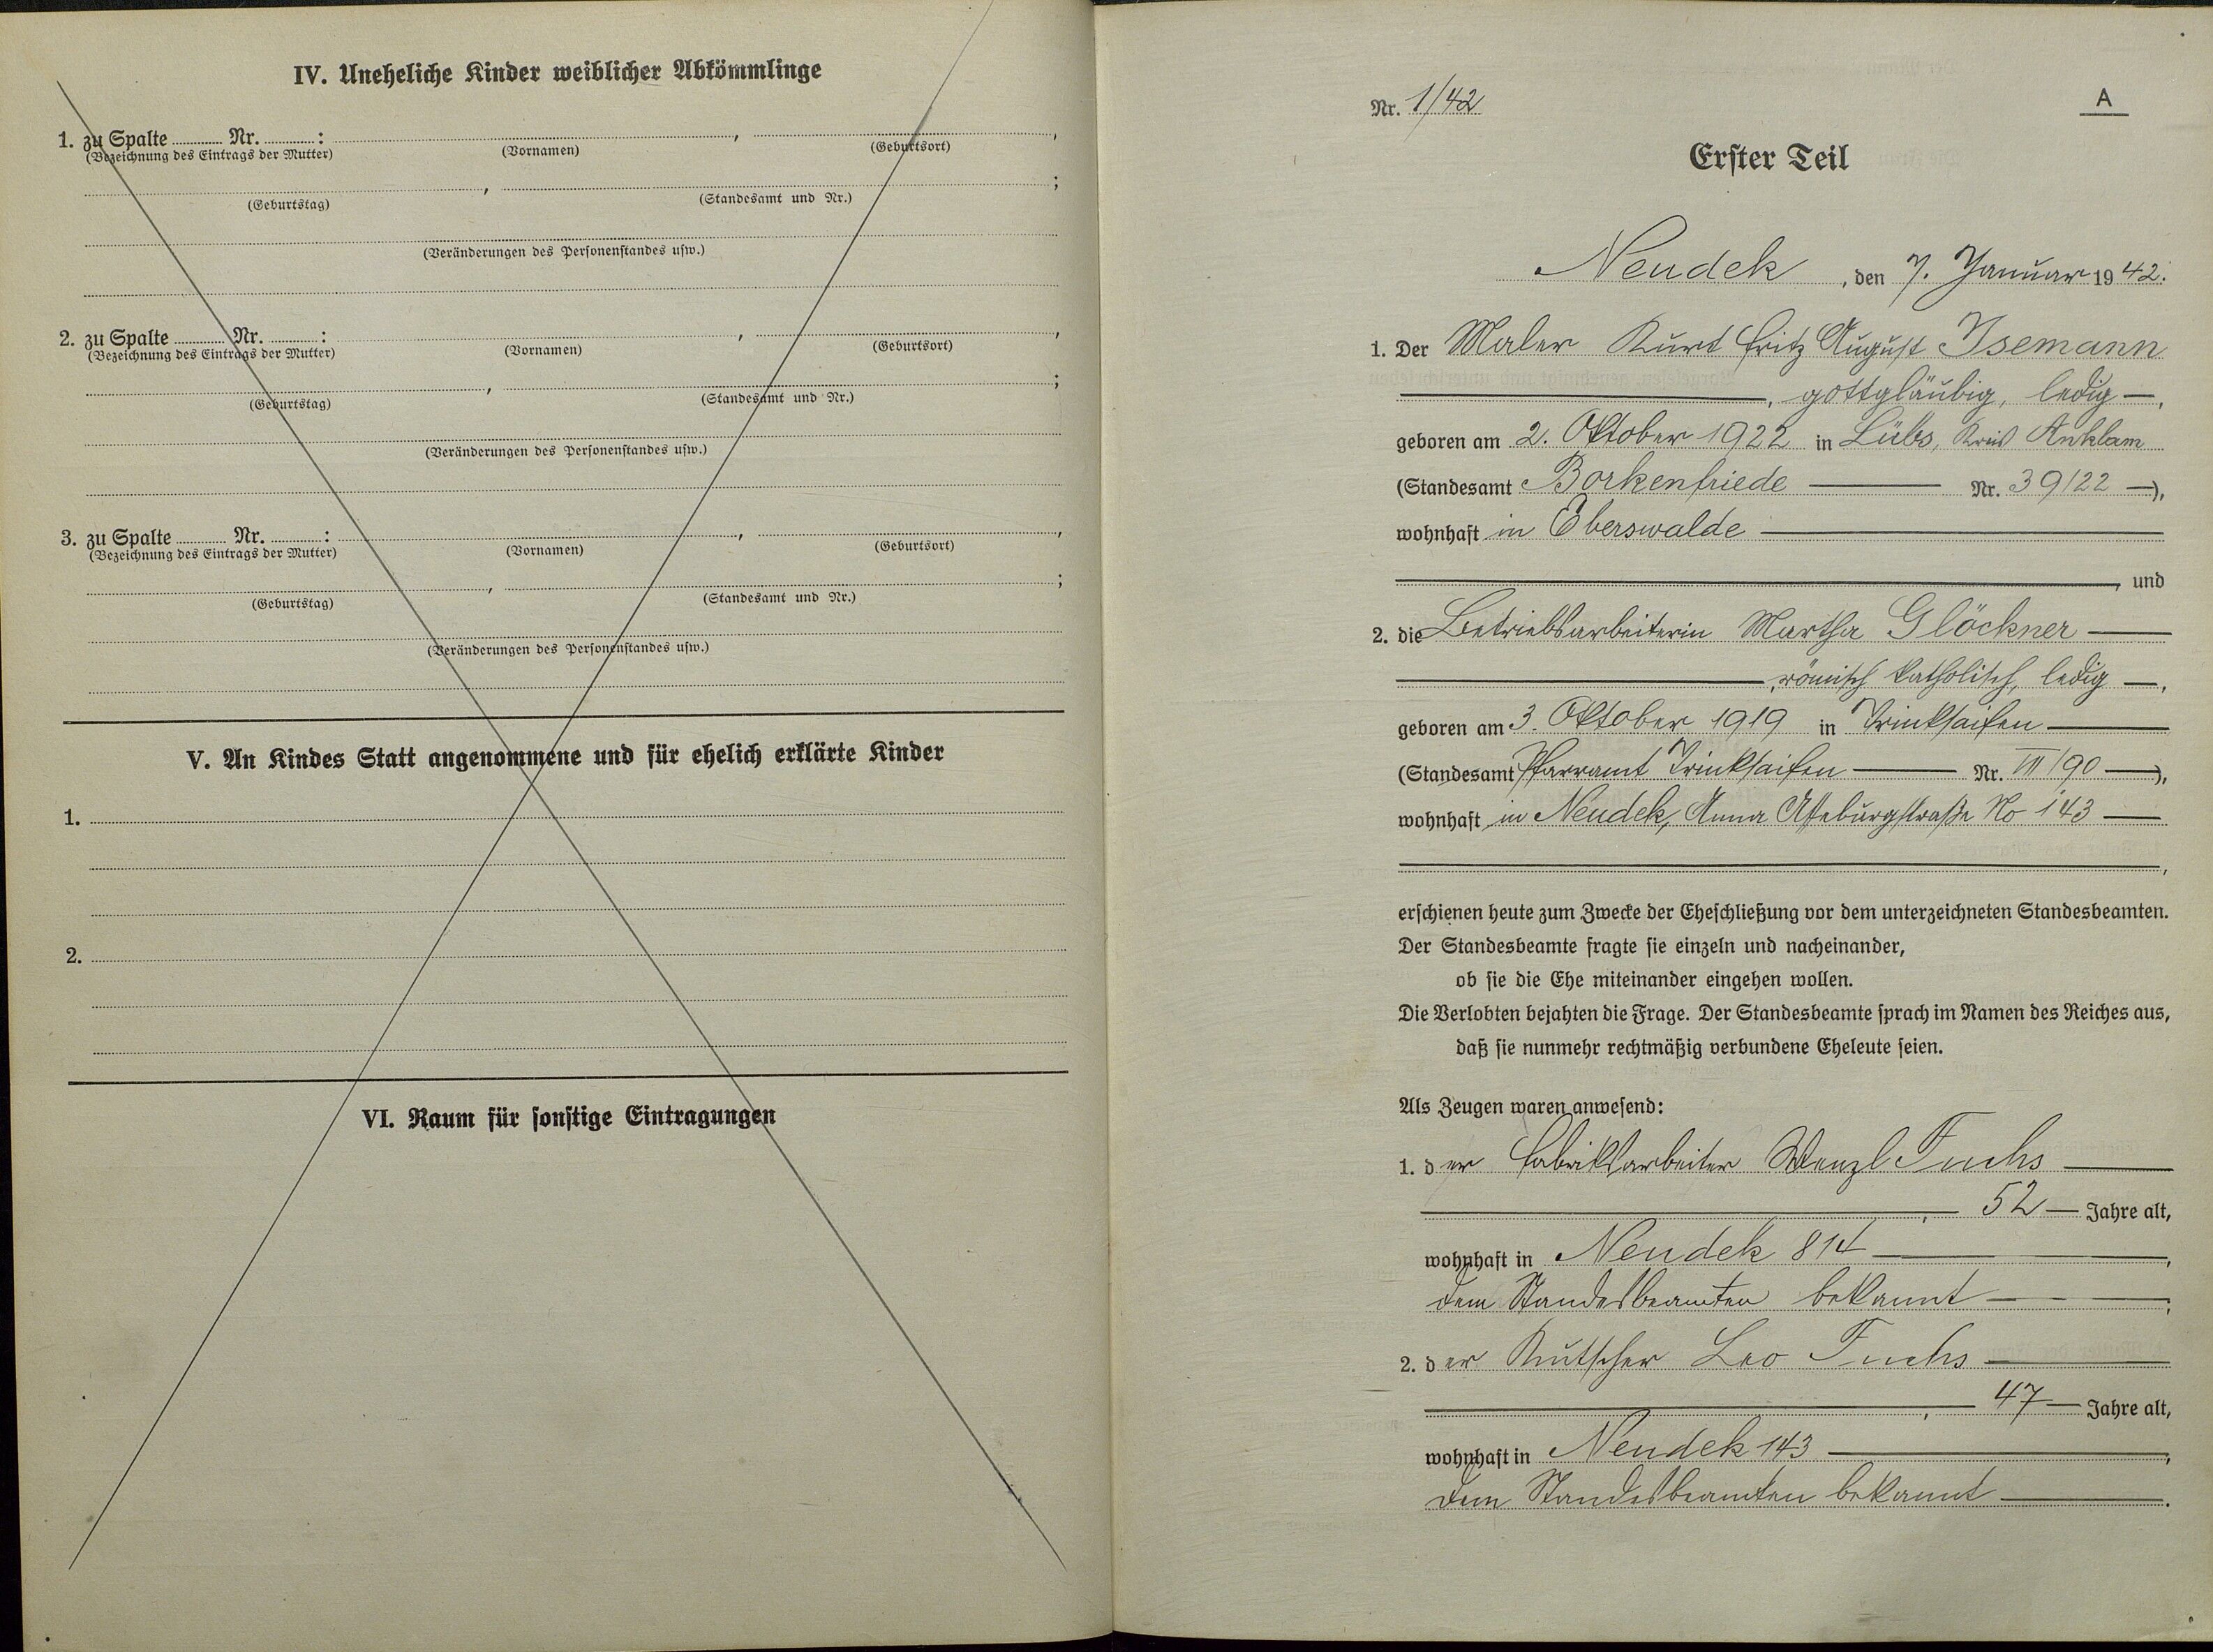 IV. Uneheliche Kinder weiblicher Abkömmlinge
1. zu Spalte ........ Nr. ........ : , ,
(Bezeichnung des Eintrags der Mutter) (Vornamen) (Geburtsort)
, ;
(Geburtstag) (Standesamt und Nr.)
(Veränderungen des Personenstandes usw.)
2. zu Spalte ........ Nr. ........ : , ,
(Bezeichnung des Eintrags der Mutter) (Vornamen) (Geburtsort)
, ;
(Geburtstag) (Standesamt und Nr.)
(Veränderungen des Personenstandes usw.)
3. zu Spalte ........ Nr. ........ : , ,
(Bezeichnung des Eintrags der Mutter) (Vornamen) (Geburtsort)
, ;
(Geburtstag) (Standesamt und Nr.)
(Veränderungen des Personenstandes usw.)
V. An Kindes Statt angenommene und für ehelich erklärte Kinder
1.
2.
VI. Raum für sonstige Eintragungen
Nr. 1/42
A
Erster Teil
Neudek, den 7. Januar 1942.
1. Der Maler Kurt Fritz August Isemann
, gottgläubig, ledig —,
geboren am 2. Oktober 1922 in Lübs, Kreis Anklam
(Standesamt Borkenfriede — Nr. 39/22 —),
wohnhaft in Eberswalde —
, und
2. die Betriebsarbeiterin Martha Glöckner —
, römisch katholisch, ledig —,
geboren am 3. Oktober 1919 in Trinksaifen —
(Standesamt Pfarramt Trinksaifen — Nr. III/90 —),
wohnhaft in Neudek, Anna Asseburgstraße No 143 —
,
erschienen heute zum Zwecke der Eheschließung vor dem unterzeichneten Standesbeamten.
Der Standesbeamte fragte sie einzeln und nacheinander,
ob sie die Ehe miteinander eingehen wollen.
Die Verlobten bejahten die Frage. Der Standesbeamte sprach im Namen des Reiches aus,
daß sie nunmehr rechtmäßig verbundene Eheleute seien.
Als Zeugen waren anwesend:
1. der Fabriksarbeiter Wenzl Fuchs —
, 52 — Jahre alt,
wohnhaft in Neudek 814 —,
dem Standesbeamten bekannt —;
2. der Kutscher Leo Fuchs —
, 47 — Jahre alt,
wohnhaft in Neudek 143 —,
dem Standesbeamten bekannt —.